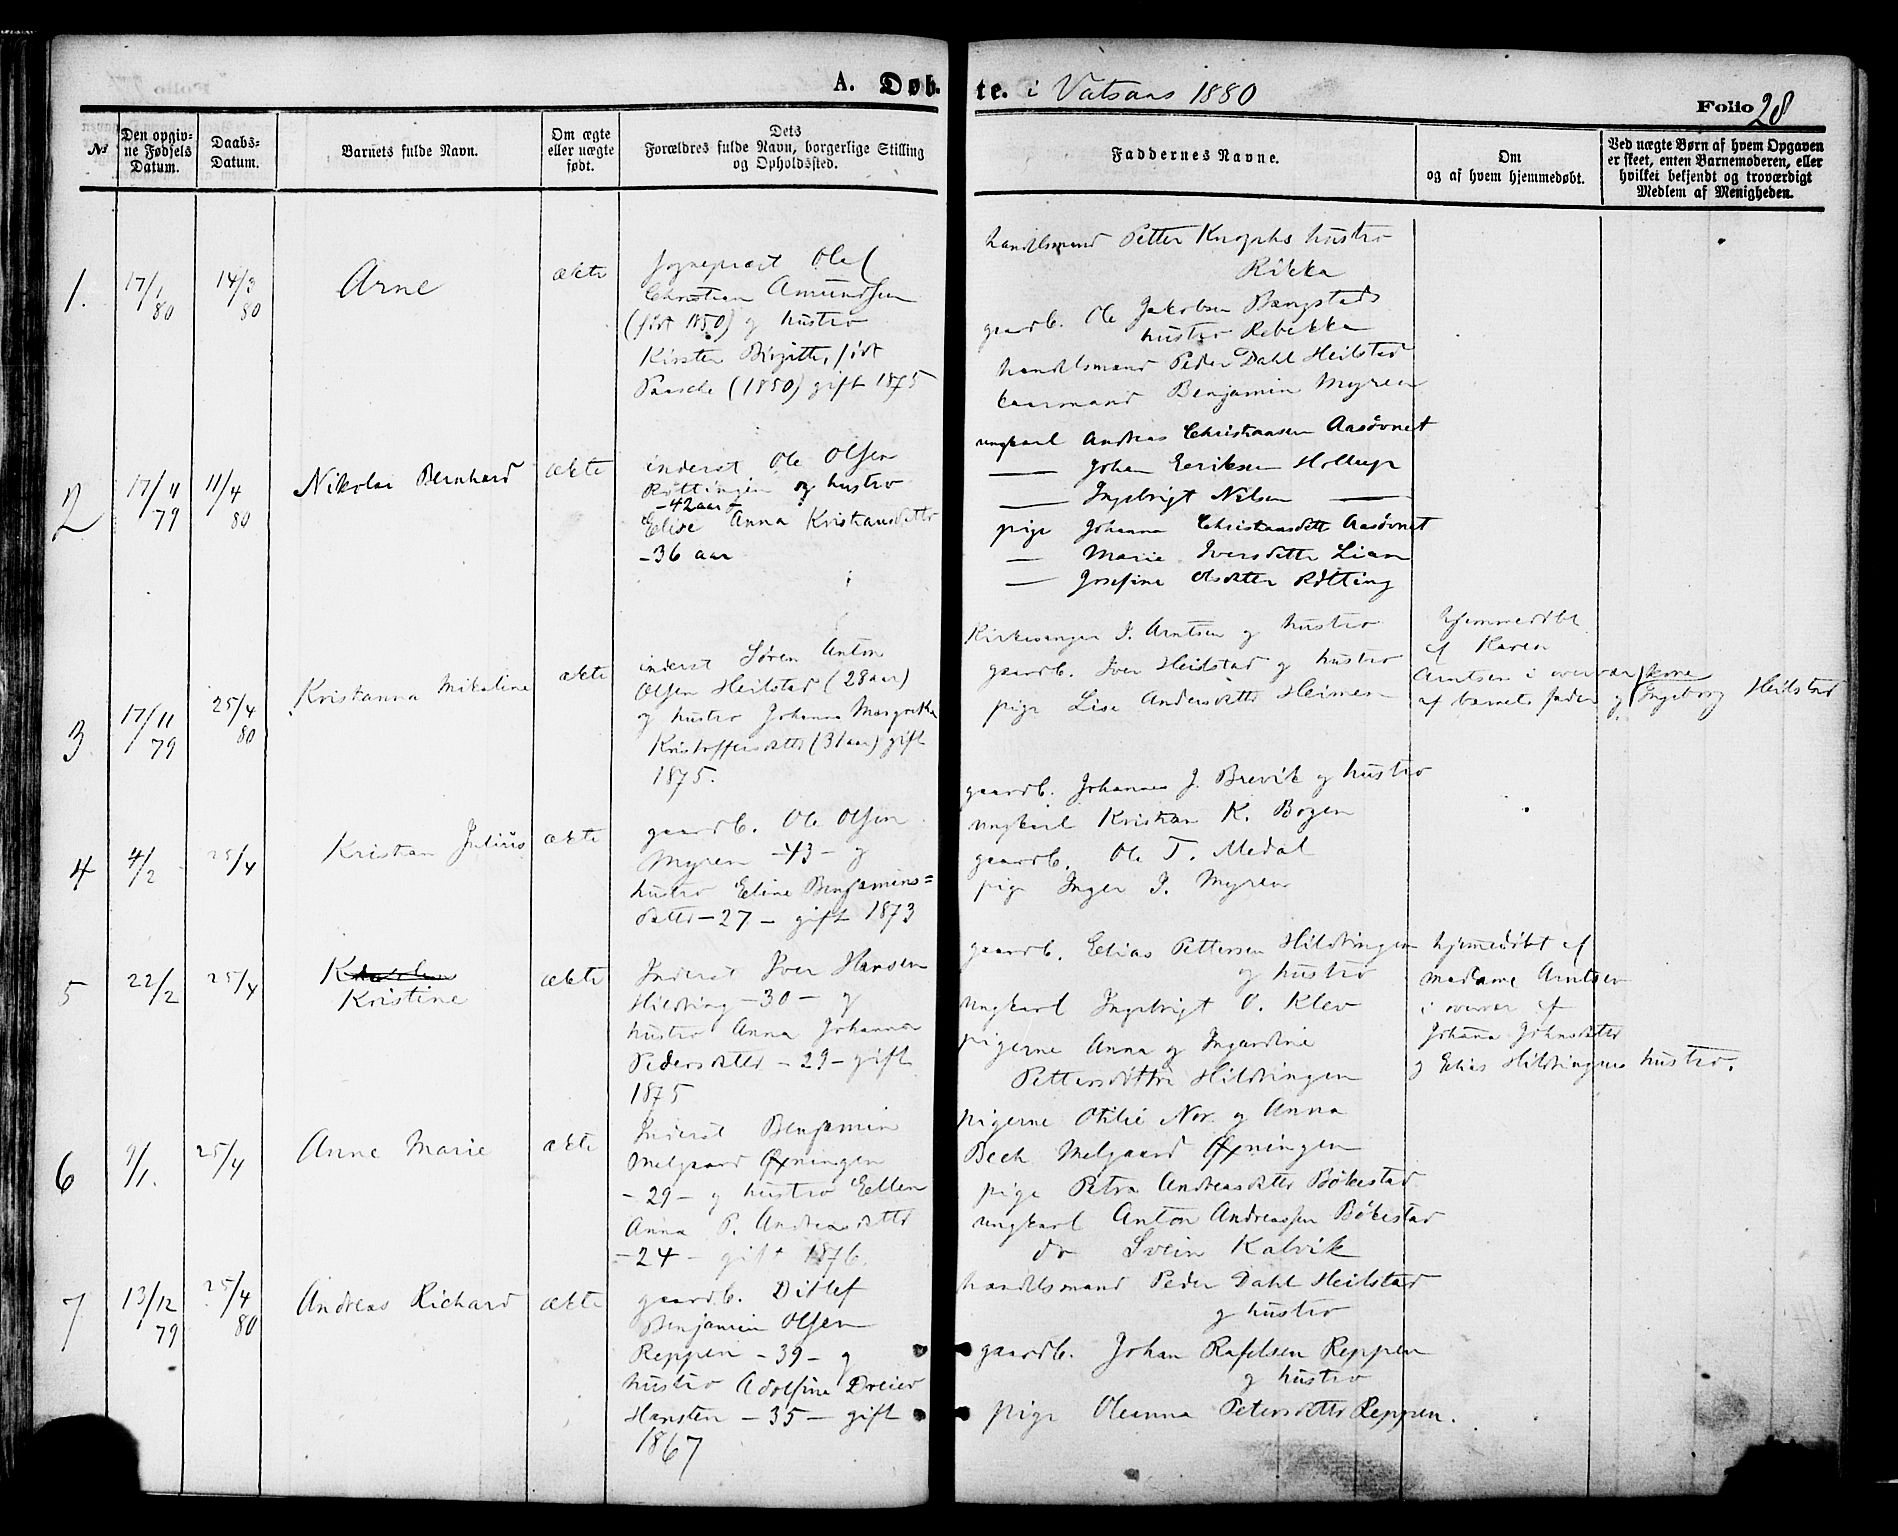 A. Døb-
te. i Vatsaas 1880
Folio 28
№
Den opgiv-
ne Fødsels
Datum.
Daabs-
Datum.
Barnets fulde Navn.
Om ægte
eller uægte
født.
Dets
Forældres fulde Navn, borgerlige Stilling
og Opholdssted.
Faddernes Navne.
Om
og af hvem hjemmedøbt.
Ved uægte Børn af hvem Opgaven
er skeet, enten Barnemoderen, eller
hvilket bekjendt og troværdigt
Medlem af Menigheden.
1.
17/1 80
14/3 80
Arne
ækte
sogneprest Olaf
Christian Amundsen
(født 1850) og hustro
Kirsten Birgitte, født
Paasche (1850) gift 1875
handelsmand Petter Knophs hustro
Rikka
gaardb. Ole Jakobsen Bangstads
hustro Rebekka
handelsmand Peder Dahl Heilstad
kaarmand Benjamin Myren
2
17/11 79
11/4 80
Nikolai Bernhard
ækte
inderst Ole Olsen
Røttingen og hustro
-42 aar-
Elise Anna Kristiansdatter
-36 aar
ungkarl Andreas Christiansen Aasøvnet
— Johan Eriksen Holtup
— Ingebrigt Nilsen —
pige Johanna Christiansdatt Aasøvnet
— Marie Iversdatter Lian
— Josefine Olsdatter Røtting
3
17/11 79
25/4 80
Kristanna Mikaline
ækte
inderst Søren Anton
Olsen Heilstad (28 aar)
og hustro Johanna Margreta
Kristoffersdatter (31 aar) gift
1875.
Kirkesanger J. Arntsen og hustro
gaardb. Iver Heilstad og hustro
pige Lise Andersdatter Heimes
hjemmedøbt
af Karen
Arntsen i overvær
af barnets fader og kone Ingeborg Heilstad
4
4/2
25/4
Kristian Julius
ækte
gaardb. Ole Olsen
Myren -43- og
hustro Eline Benjamins=
datter -27- gift 1873
gaardb. Johannes J. Brevik og hustro
ungkarl Kristian K. Bogen
gaardb. Ole T. Medal
pige Inger J. Myren
5
22/2
25/4
Kristine
ækte
Inderst Iver Hansen
Hildring -30- og
hustro Anna Johanna
Pedersdatter -29- gift
1875
gaardb. Elias Pettersen Hildringen
og hustro
ungkarl Ingebrigt O. Klev
pigerne Anna og Ingardine
Pettersdøttre Hildringen
hjemedøbt af
madame Arntsen
i overvær af
Johana Johnsdatter
og Elias Hildringens hustro.
6
9/1.
25/4
Anne Marie
ækte
Inderst Benjamin
Melgaard Øxningen
-29- og hustro Ellen
Anna P. Andreasdatter
-24- gift 1876.
pigerne Otilie Nor. og Anna
Beck Melgaard Øxningen
pige Petra Andreasdatter Bøkestad
ungkarl Anton Andreassen Bøkestad
do Svein Kalvik
7
13/12 79
25/4 80
Andreas Richard
ækte
gaardb. Ditlef
Benjamin Olsen
Reppen -39- og
hustro Adolfine Dreier
Hansten -35- gift
1867
handelsmand Peder Dahl Heilstad
og hustro
gaardb. Johan Rafelsen Reppen
og hustro
pige Oleanna Petersdatter Reppen.